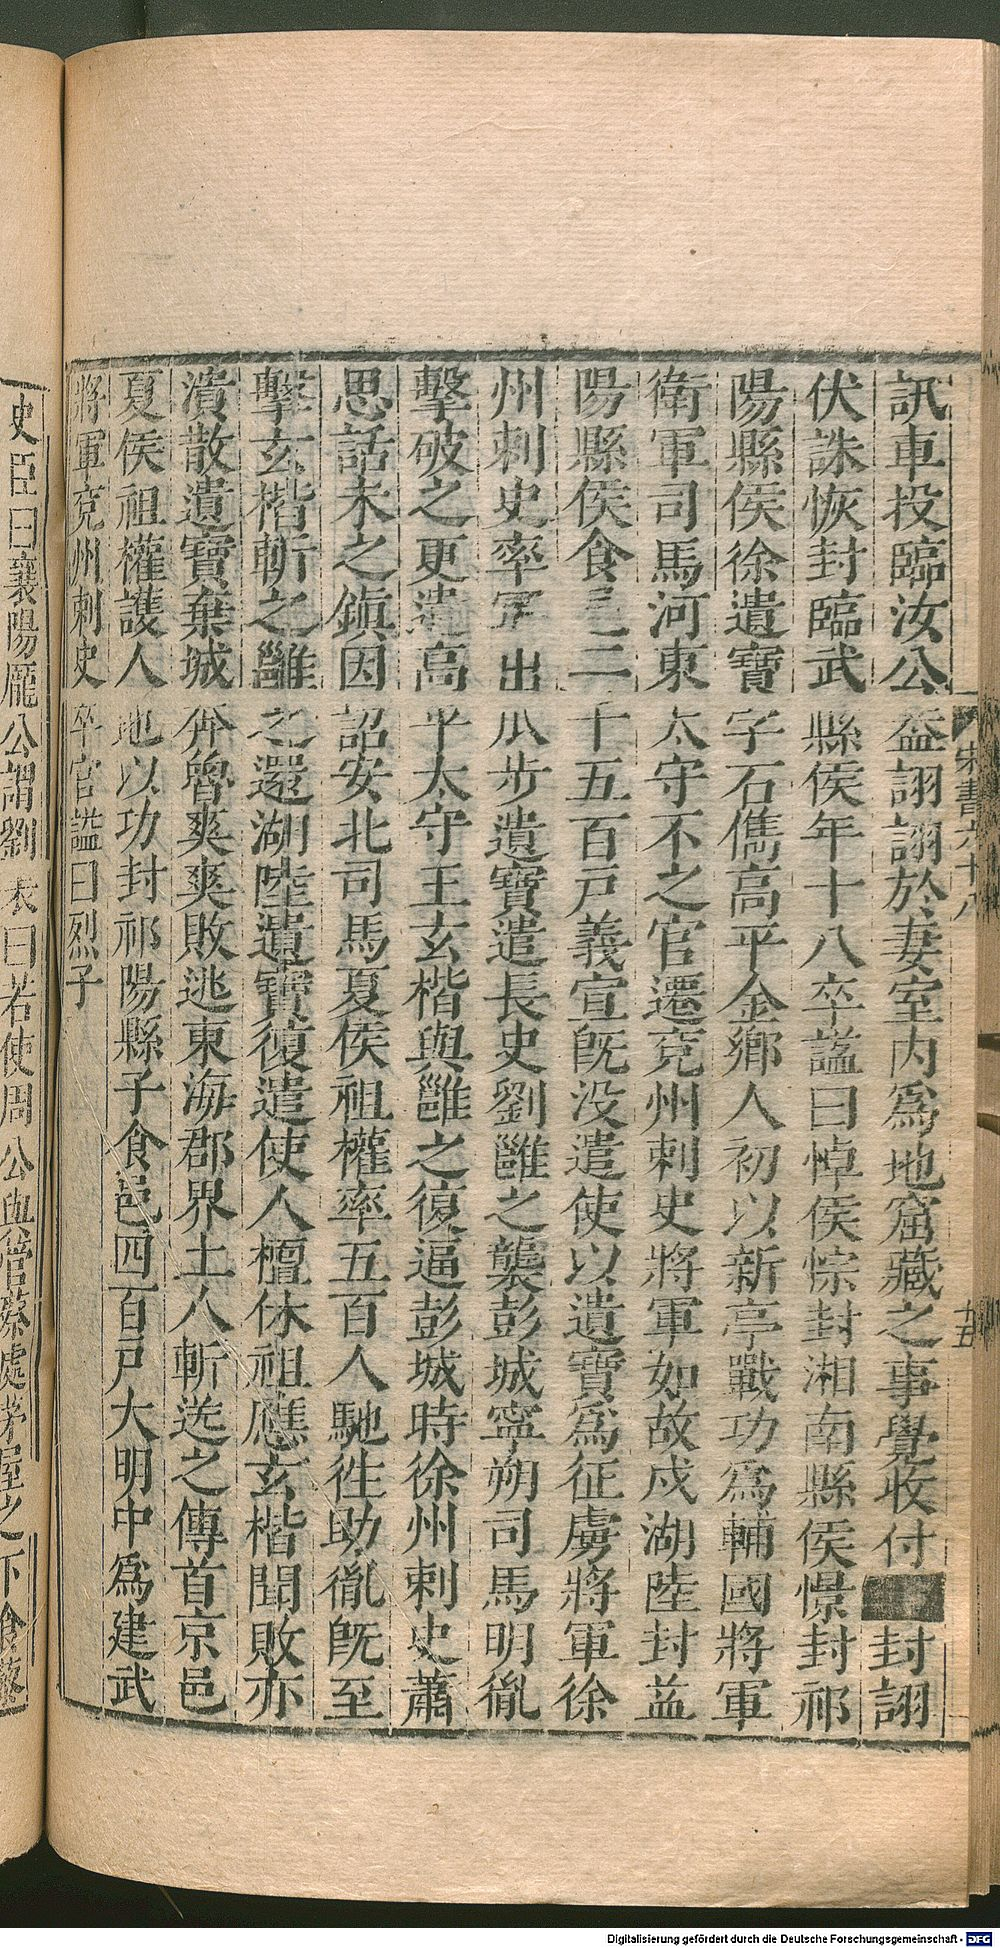 訊車投臨汝公益詡詡於妻室內爲地窟藏之事覺收付封詡
伏誅恢封臨武縣侯年十八卒謚曰悼侯悰封湘南縣侯憬封祁
陽縣侯徐遺寶字石儁高平金鄉人初以新亭戰功爲輔國將軍
衛軍司馬河東太守不之官遷兗州刺史將軍如故戍湖陸封益
陽縣侯食邑二十五百戶義宣旣没遣使以遺寶爲征虜將軍徐
州刺史率軍出瓜步遺寶遣長史劉雝之襲彭城寧朔司馬明胤
擊破之更遣高平太守王玄楷與雝之復逼彭城時徐州刺史蕭
思話未之鎭因詔安北司馬夏侯祖權率五百人馳徃助胤旣至
擊玄楷斬之雝之還湖陸遺寶復遣使人檀休祖應玄楷聞敗亦
潰散遺寶棄城奔魯爽爽敗逃東海郡界土人斬送之傳首京邑
夏侯祖權譙人也以功封祁陽縣子食邑四百戶大明中爲建武
將軍兗州刺史卒官謚曰烈子
史臣曰襄陽龐公謂劉表曰若使周公與管蔡處茅屋之下食藜
宋書六十八
十五
Digitalisierung gefördert durch die Deutsche Forschungsgemeinschaft - DFG